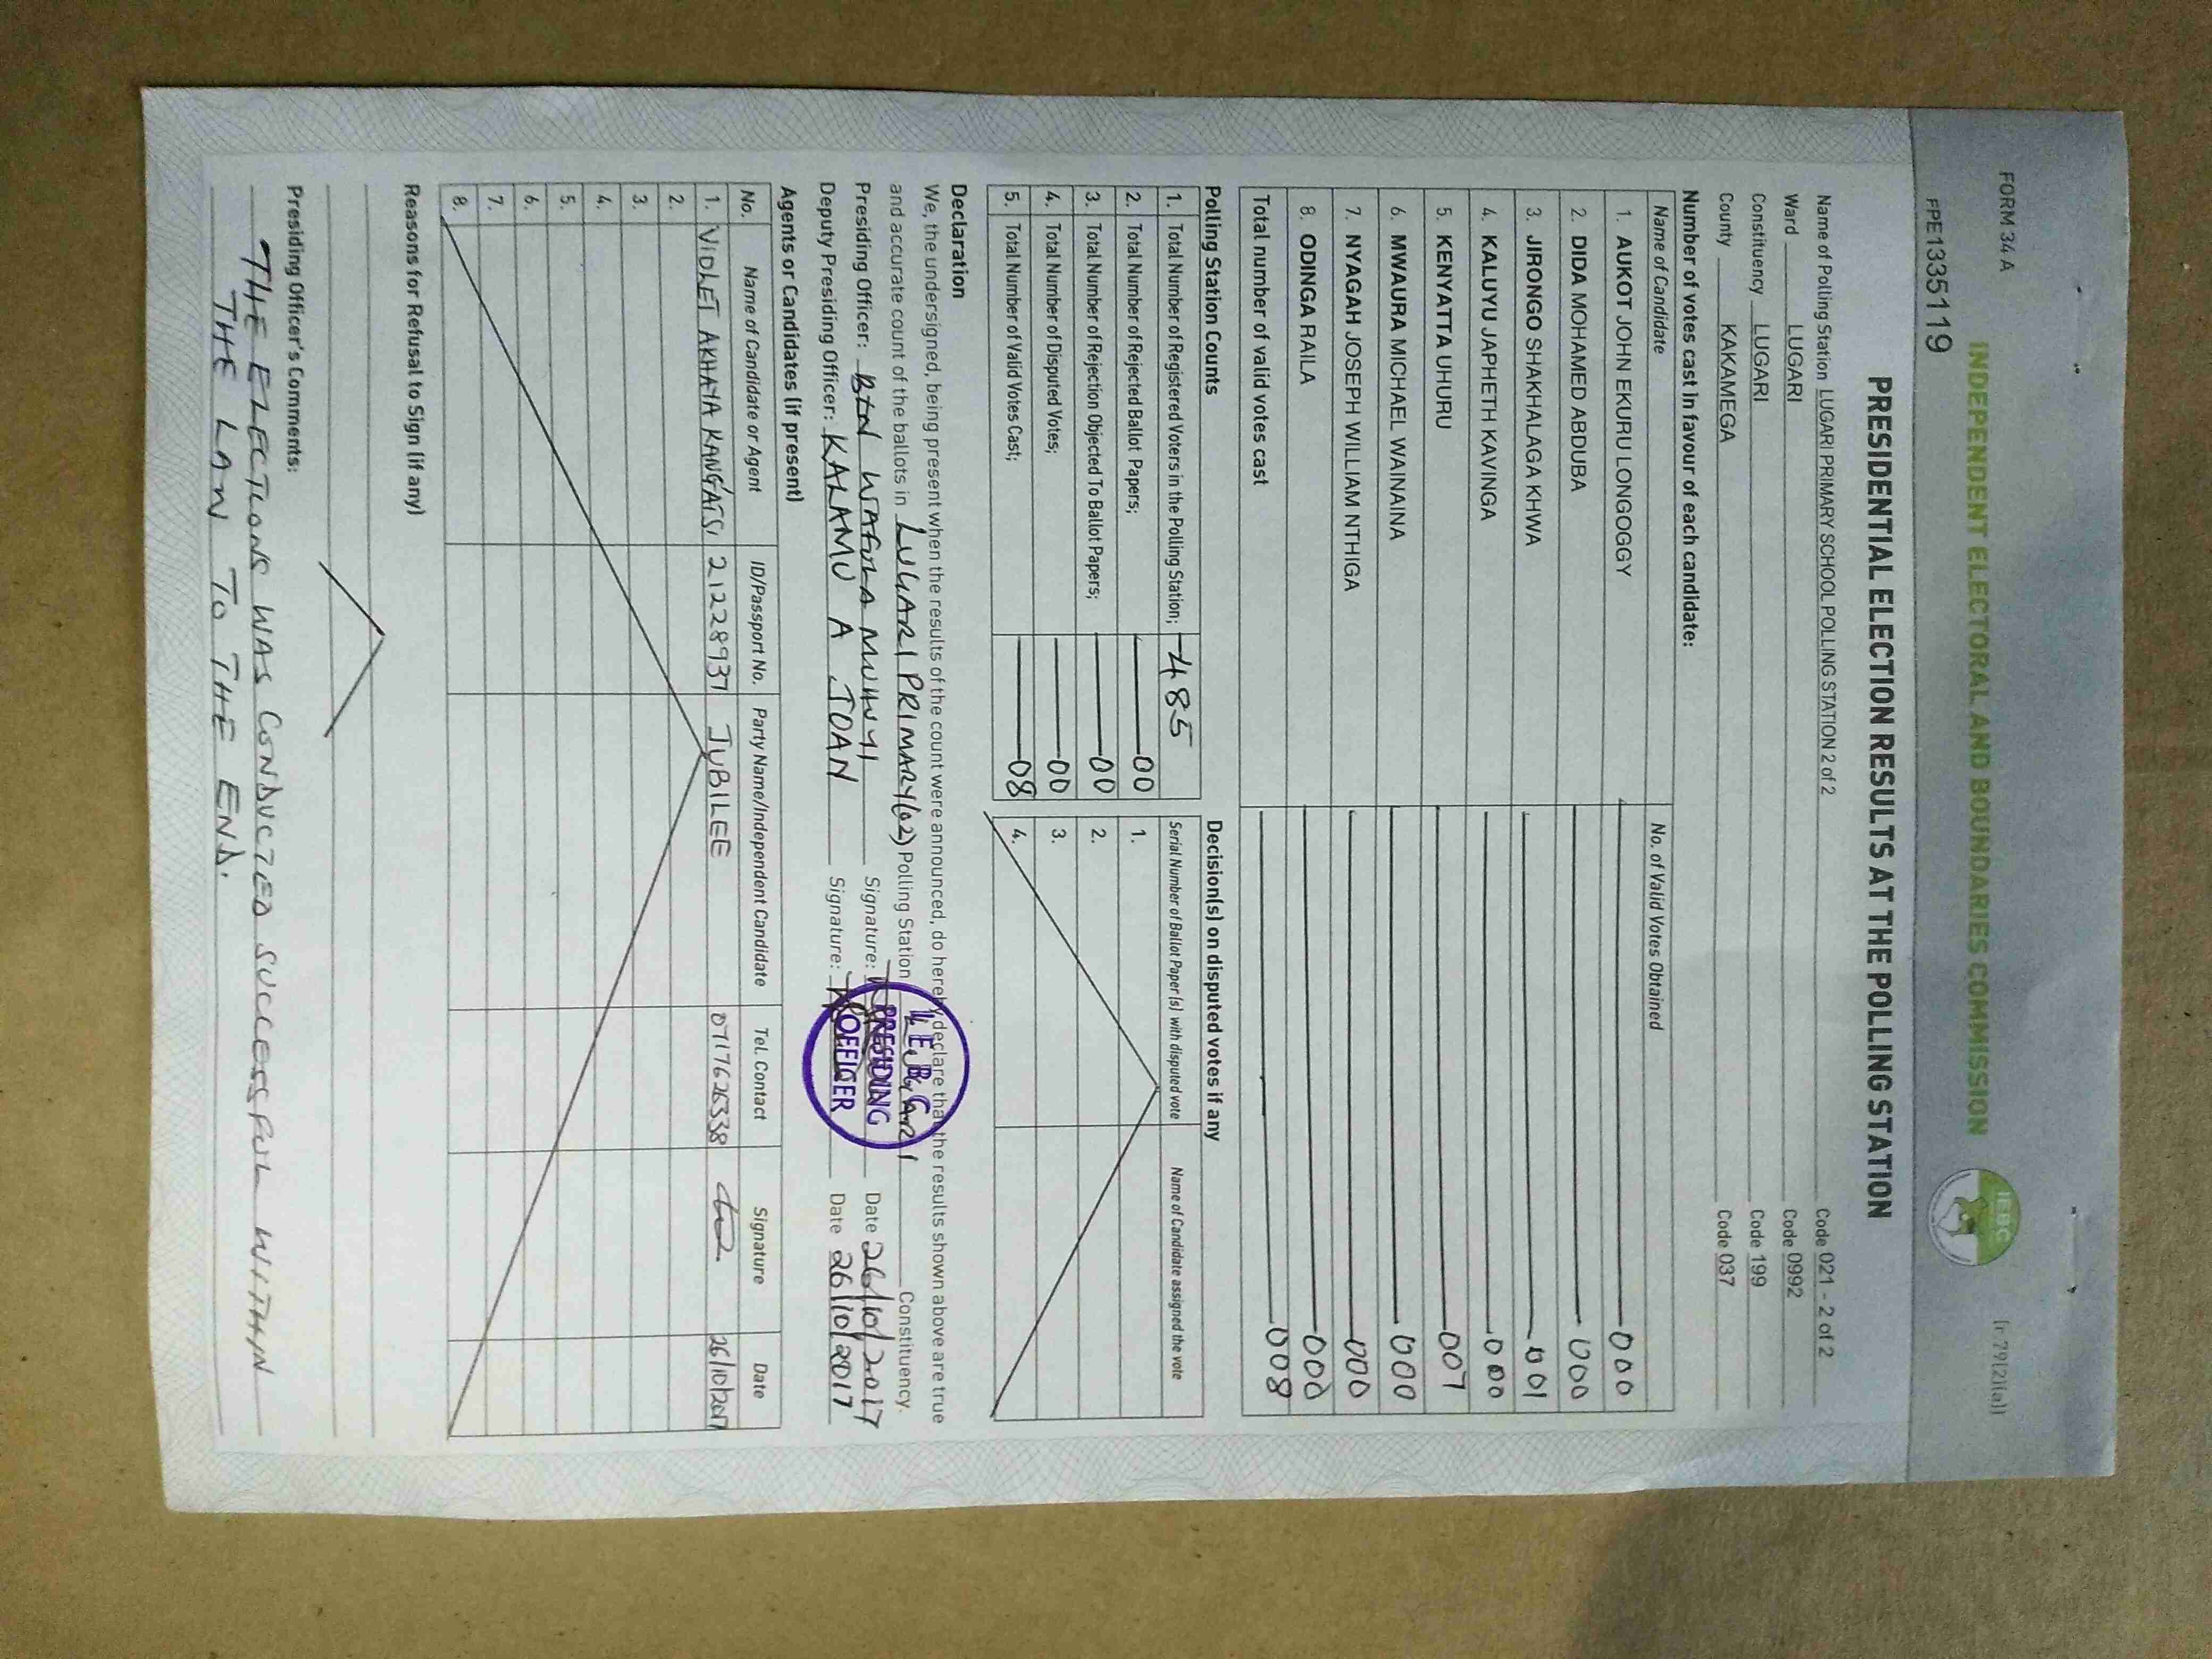 FORM 34 A
INDEPENDENT ELECTORAL AND BOUNDARIES COMMISSION
IEBC
(r 79(2)(a))
FPE1335119
PRESIDENTIAL ELECTION RESULTS AT THE POLLING STATION
Name of Polling Station LUGARI PRIMARY SCHOOL POLLING STATION 2 of 2 Code 021 - 2 of 2
Ward LUGARI Code 0992
Constituency LUGARI Code 199
County KAKAMEGA Code 037
Number of votes cast in favour of each candidate:
Name of Candidate No. of Valid Votes Obtained
1. AUKOT JOHN EKURU LONGOGGY 000
2. DIDA MOHAMED ABDUBA 000
3. JIRONGO SHAKHALAGA KHWA 001
4. KALUYU JAPHETH KAVINGA 000
5. KENYATTA UHURU 007
6. MWAURA MICHAEL WAINAINA 000
7. NYAGAH JOSEPH WILLIAM NTHIGA 000
8. ODINGA RAILA 000
Total number of valid votes cast 008
Polling Station Counts
1. Total Number of Registered Voters in the Polling Station; 485
2. Total Number of Rejected Ballot Papers; 00
3. Total Number of Rejection Objected To Ballot Papers; 00
4. Total Number of Disputed Votes; 00
5. Total Number of Valid Votes Cast; 08
Decision(s) on disputed votes if any
Serial Number of Ballot Paper (s) with disputed vote Name of Candidate assigned the vote
1.
2.
3.
4.
Declaration
We, the undersigned, being present when the results of the count were announced, do hereby declare that the results shown above are true
and accurate count of the ballots in LUGARI PRIMARY Polling Station Constituency.
Presiding Officer: WAFULA Signature: Date 26/10/2017
Deputy Presiding Officer: KALAMU A JOAN Signature: Date 26/10/2017
I.E.B.C
PRESIDING
OFFICER
Agents or Candidates (if present)
No. Name of Candidate or Agent ID/Passport No. Party Name/Independent Candidate Tel. Contact Signature Date
1. VIOLET AKHAYA KANG'ATSI 21228937 JUBILEE 0717626338 26/10/2017
2.
3.
4.
5.
6.
7.
8.
Reasons for Refusal to Sign (if any)
Presiding Officer's Comments:
THE ELECTIONS WAS CONDUCTED SUCCESSFUL WITHIN
THE LAW TO THE END.